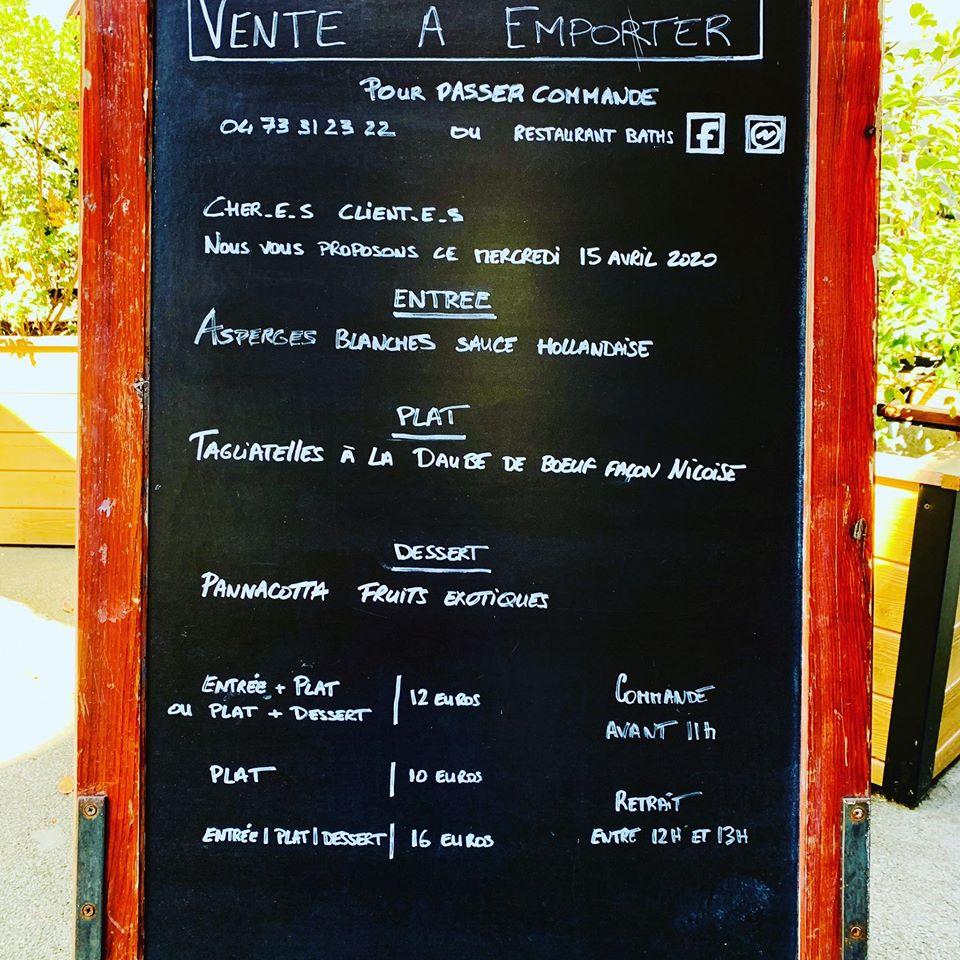 VENTE A EMPORTER
POUR PASSER COMMANDE
04 73 31 23 22 OU RESTAURANT BATHS f
CHER.E.S CLIENT.E.S
NOUS VOUS PROPOSONS CE MERCREDI 15 AVRIL 2020
ENTREE
ASPERGES BLANCHES SAUCE HOLLANDAISE
PLAT
TAGLIATELLES À LA DAUBE DE BOEUF FAÇON NICOISE
DESSERT
PANNACOTTA FRUITS EXOTIQUES
ENTRÉE + PLAT
OU PLAT + DESSERT | 12 EUROS
PLAT | 10 EUROS
ENTRÉE | PLAT | DESSERT | 16 EUROS
COMMANDE
AVANT 11h
RETRAIT
ENTRE 12H ET 13H